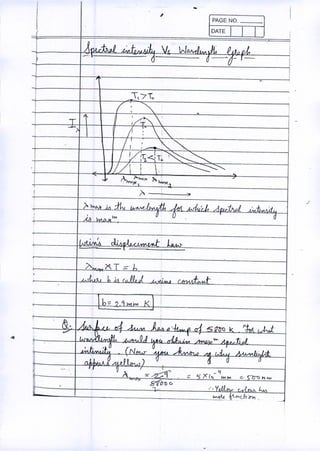 PAGE NO.
DATE
Spectral intensity Vs Wavelength Graph
T₁ > T₀
T₀
T₂ < T₀
I
λmax₁ λmax λmax₂
λ →
λmax is the wavelength for which spectral intensity
is maxᵐ
Wein's displacement Law
λmax X T = b
where b is called weins constant
b = 2.9 mm K
Q: Surface of sun has a temp of 5800 K. For what
wavelength would you obtain maxᵐ spectral
intensity. (Now you know why sunlight
appears yellow)
λmax = 2.9 = 5 X 10⁻⁴ mm = 500 nm
∴ Yellow colour has
more fraction.